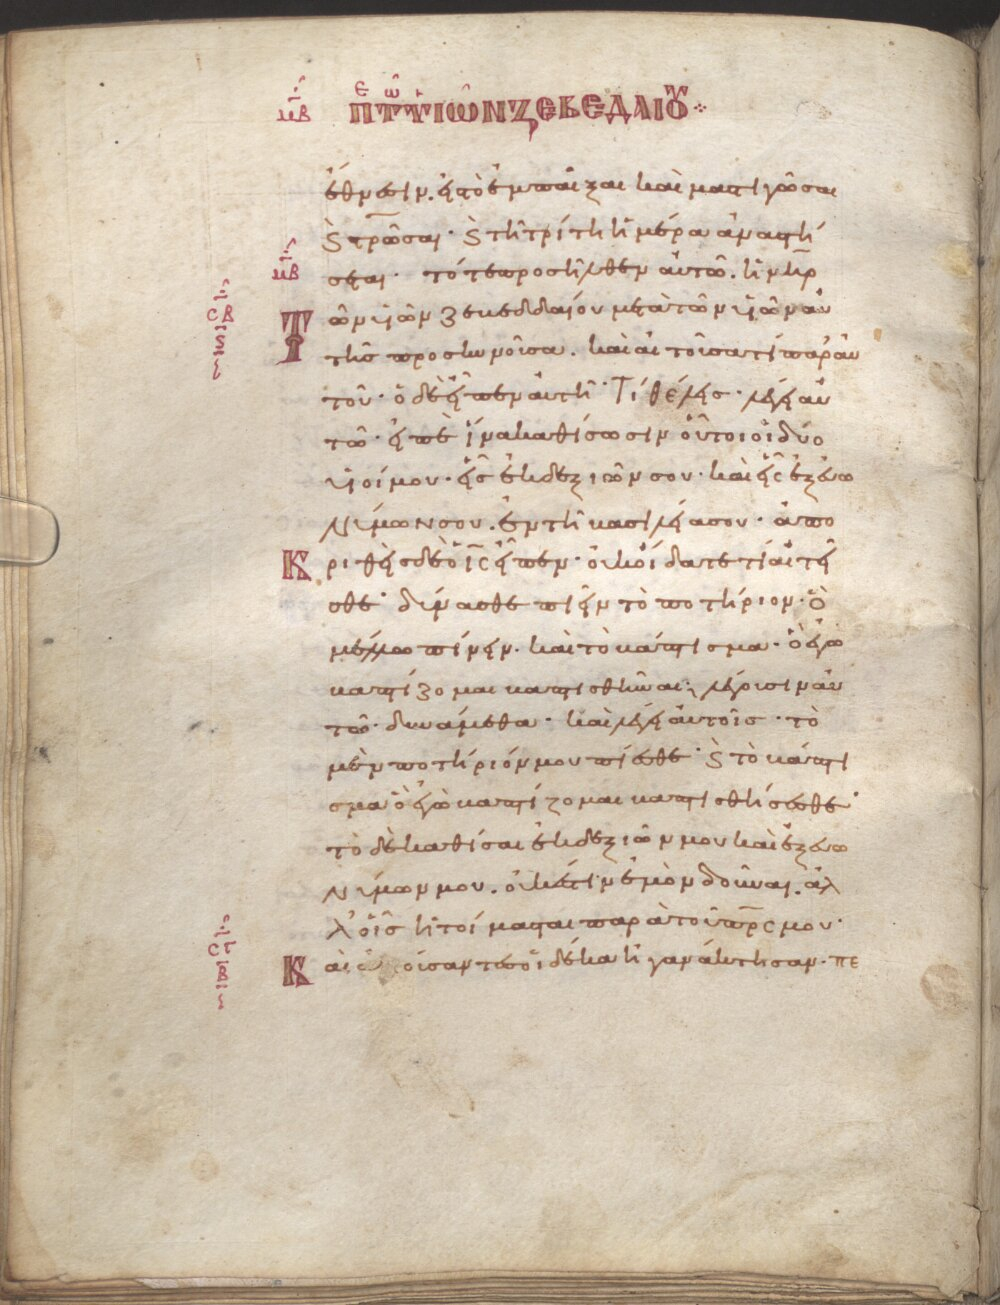 μβ
πε τω υιων ζεβεδαιου
ἔθνεσιν. εἰς τὸ ἐμπαῖξαι καὶ μαστιγῶσαι
ϗ στρῶσαι· ϗ τῆ τρίτη ἡμέρα ἀναστή
σεται· τότε προσῆλθεν αὐτῶ. ἡ μηρ
μβ
τῶν υἱῶν ζεβεδαίου μετὰ τῶν υἱῶν αὐ
τῆς προσκυνοῦσα. καὶ αἰτοῦσα τί παρ' αὐ
τοῦ· ὁ δὲ εἶπεν αὐτῆ· Τί θέλεις· λέγει αὐ
τῶ· εἰπὲ ἵνα καθίσωσιν οὗτοι οἱ δύο
υἱοί μου· εἷς ἐκ δεξιῶν σου· καὶ εἷς ἐξ εὐω
νύμων σου. ἐν τῆ βασιλεία σου· ἀπο
Κριθεὶς δὲ ὁ ις εἶπεν· οὐκ οἴδατε τί αἰτεῖ
σθε· δύνασθε πιεῖν τὸ ποτήριον· ὃ
μέλλω πίνειν. καὶ τὸ βάπτισμα· ὃ ἐγὼ
βαπτίζομαι βαπτισθῆναι· λέγουσιν αὐ
τῶ· δυνάμεθα· καὶ λέγει αὐτοῖς· τὸ
μὲν ποτήριόν μου πίεσθε· ϗ τὸ βάπτι
σμα ὃ ἐγὼ βαπτίζομαι βαπτισθήσεσθε·
τὸ δὲ καθίσαι ἐκ δεξιῶν μου καὶ ἐξ εὐω
νύμων μου. οὐκ ἔστιν ἐμὸν δοῦναι. ἀλ
λ' οἷς ἡτοίμασται παρὰ τοῦ πρς μου·
Καὶ ἀκούσαντες οἱ δέκα ἠγανάκτησαν· πε